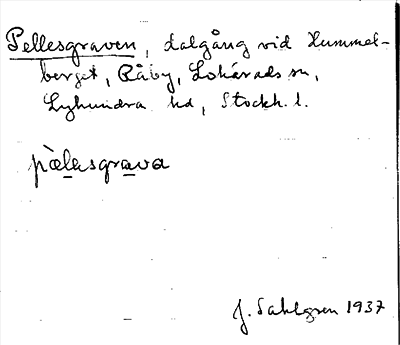 Pellesgraven, dalgång vid Hummel-
berget, Råby, Lohärads sn,
Lyhundra hd, Stockh. l.
pälasgrava
J. Sahlgren 1937